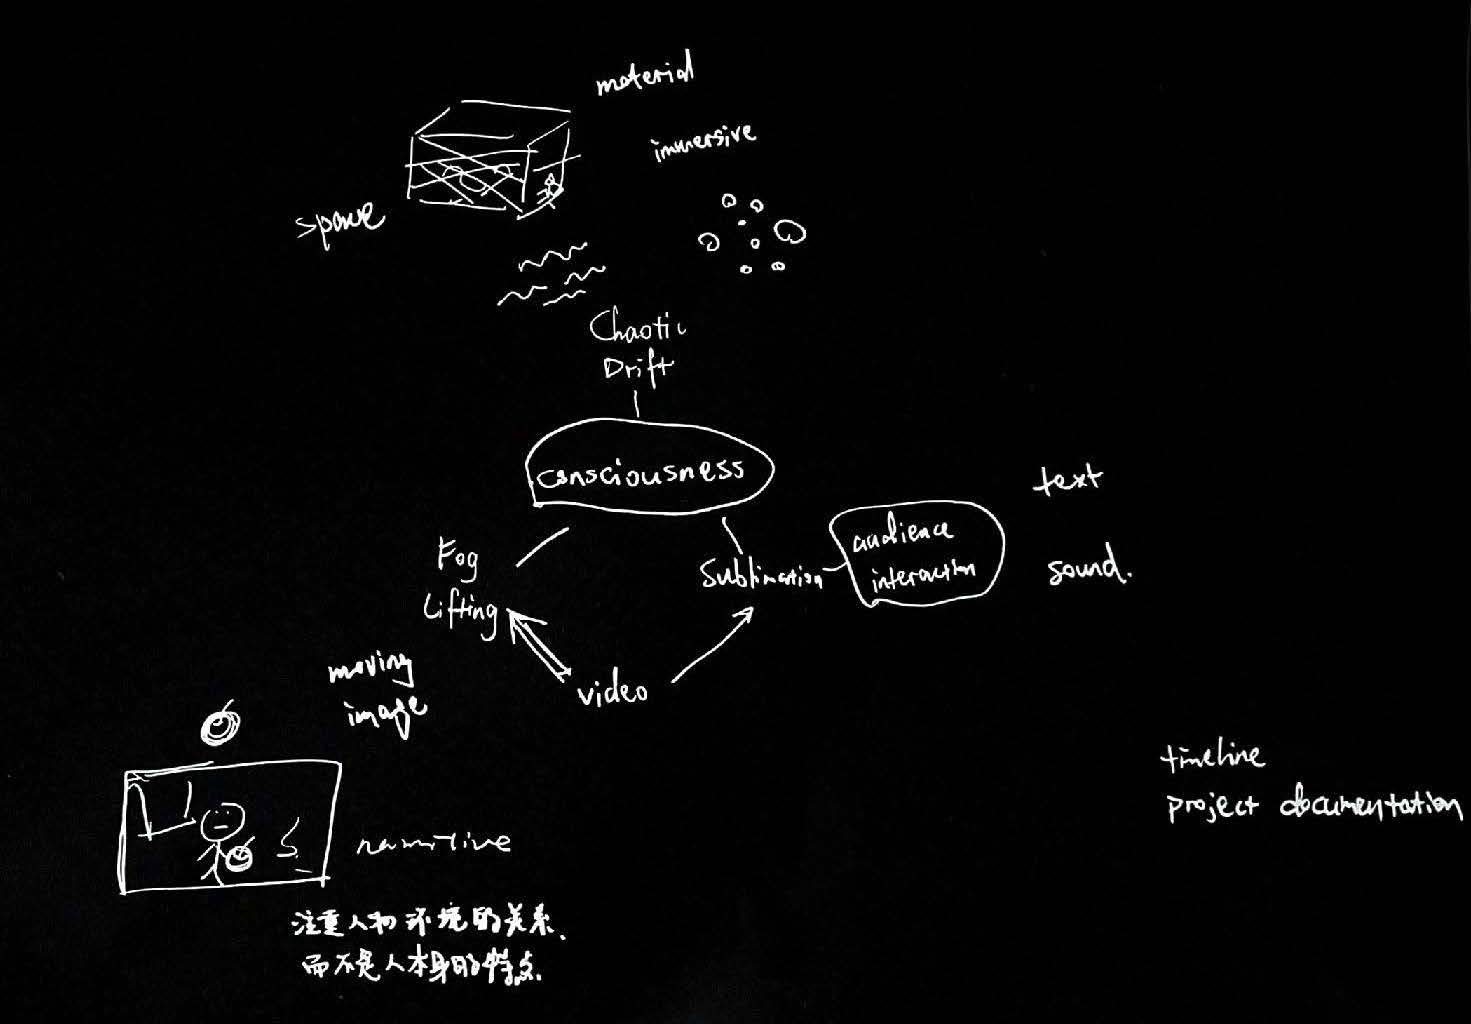 material
immersive
space
Chaotic
Drift
consciousness
text
audience
interaction
Fog
Lifting
Sublimation
sound.
moving
image
video
timeline
project documentation
narrative
注重人和环境的关系、
而不是人本身的特点.